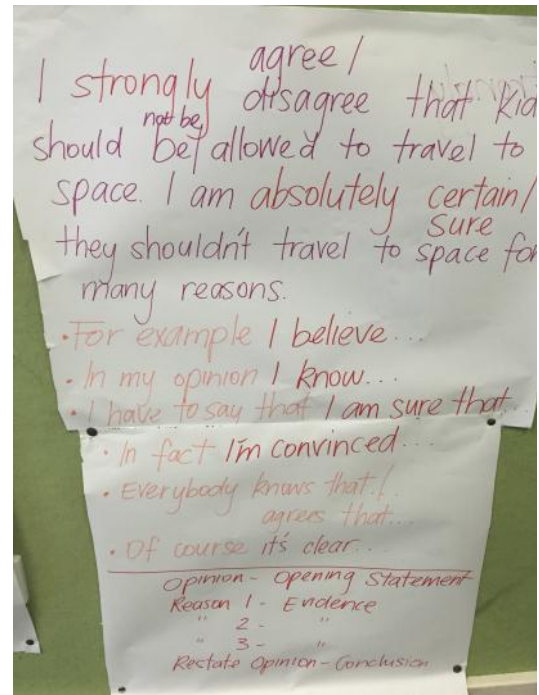 agree/
I strongly disagree that kid
not be
should be/ allowed to travel to
space. I am absolutely certain/
sure
they shouldn't travel to space for
many reasons.
• For example I believe...
• In my opinion I know...
• I have to say that I am sure that...
• In fact I'm convinced...
• Everybody knows that /
agrees that...
• Of course it's clear...
Opinion - Opening Statement
Reason 1 - Evidence
" 2 - "
" 3 - "
Restate Opinion - Conclusion